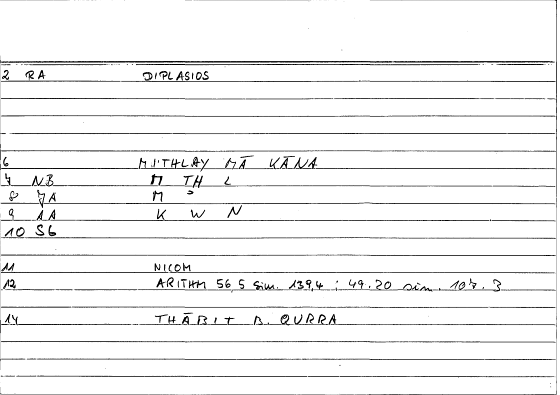 2 RA DIPLASIOS
6 MITHLAY MĀ KĀNA
7 NB M TH L
8 JA M °
9 AA K W N
10 SG
11 NICOM
12 ARITHM 56,5 sim. 139,4 ; 49.20 sim. 107. 3
14 THĀBIT B. QURRA